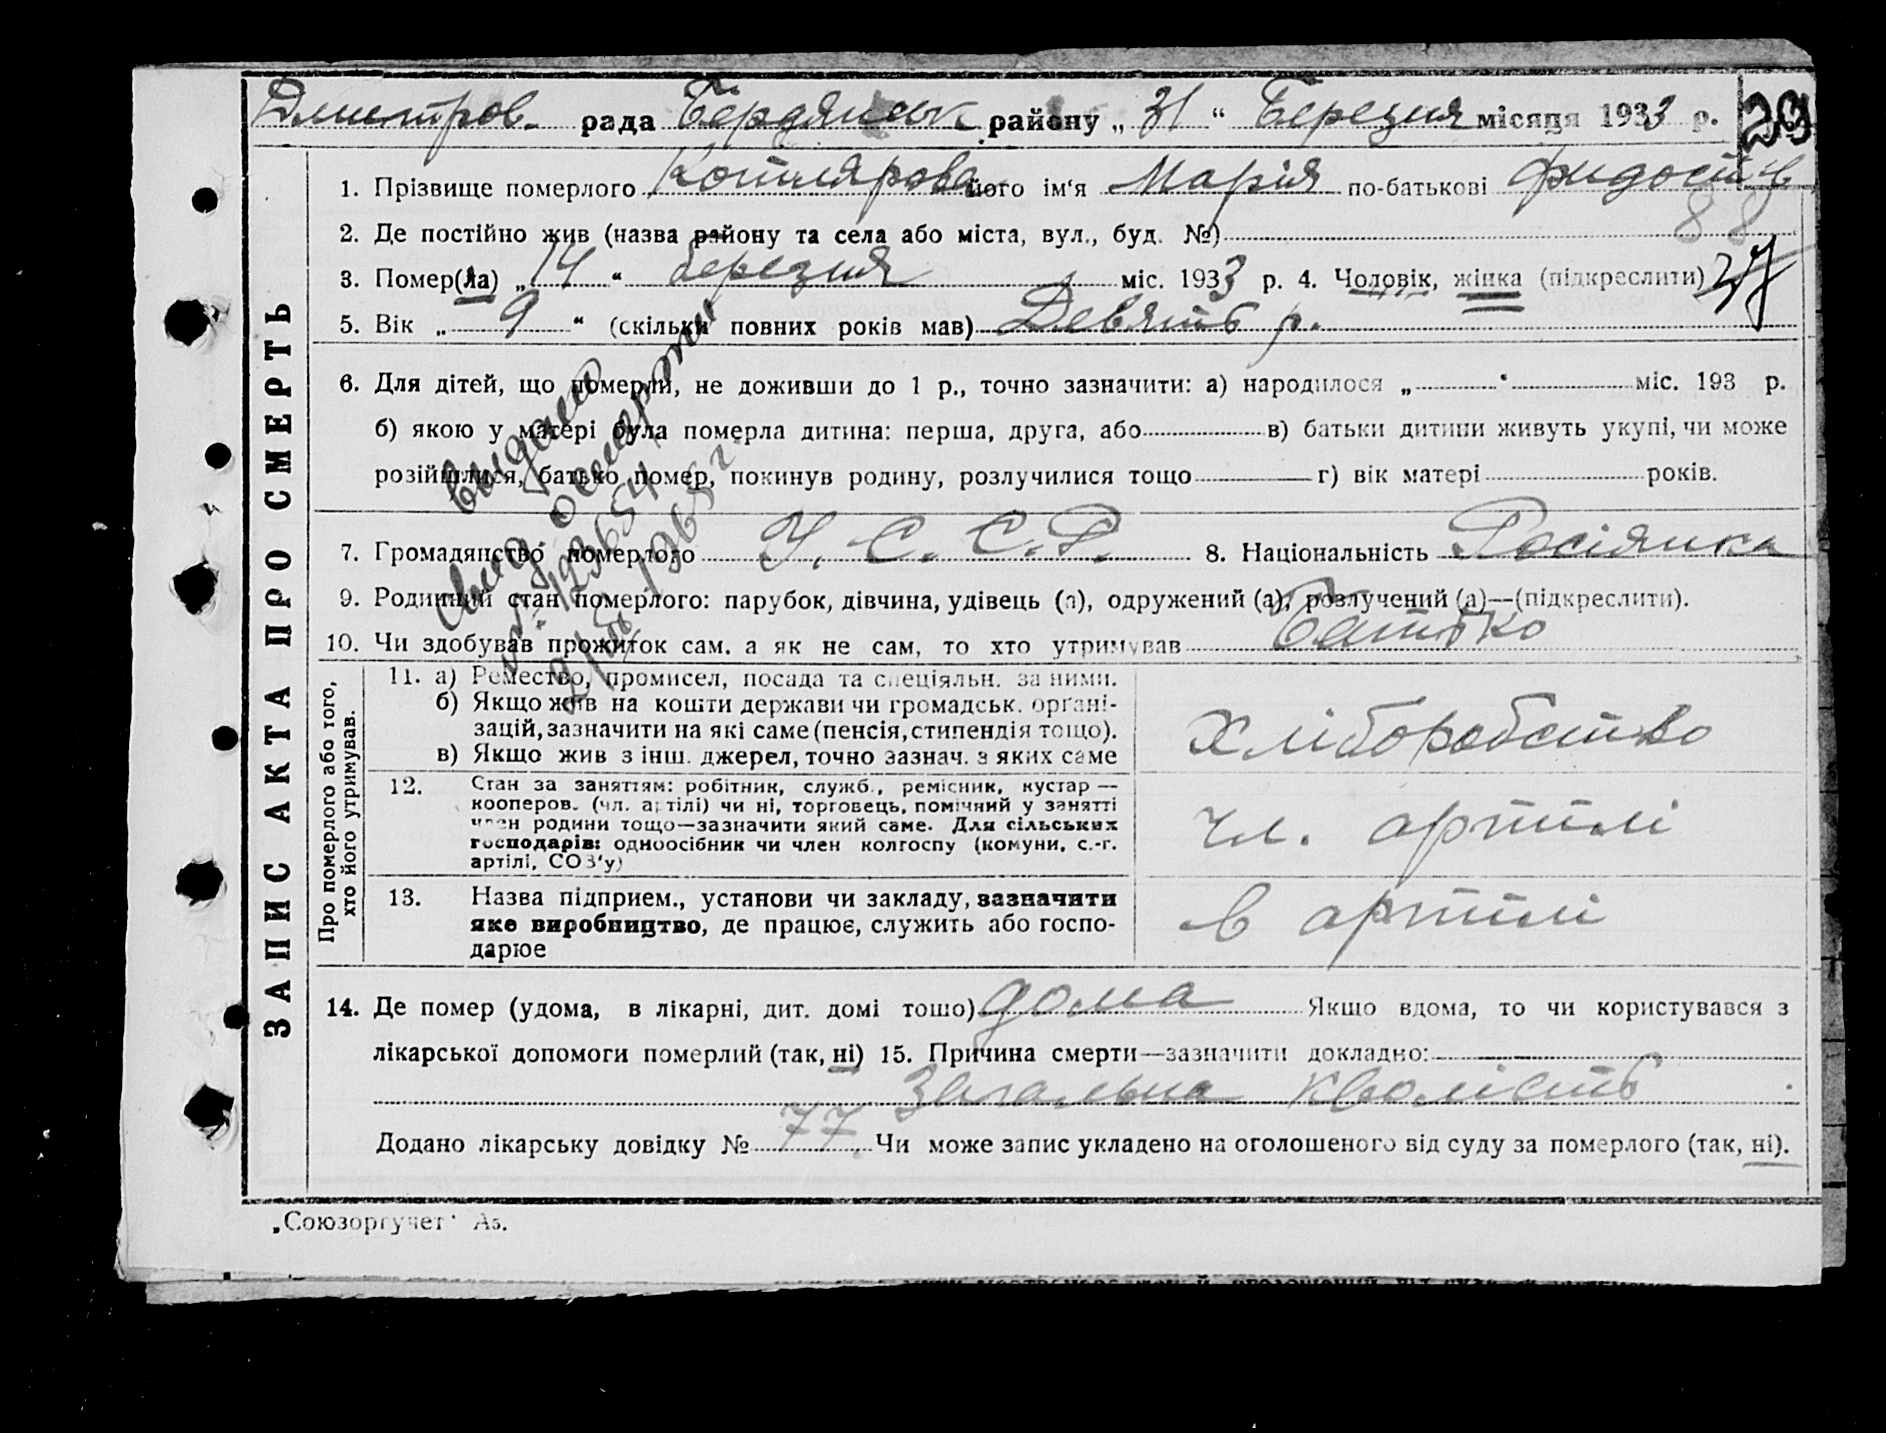 Дмитров. рада Бердянськ району „ 31 “ Березня місяця 1933 р. 29
1. Прізвище померлого Котлярова його ім'я Марія по-батькові
88
2. Де постійно жив (назва району та села або міста, вул., буд. №)
3. Помер(ла) „ 14 “ березня міс. 1933 р. 4. Чоловік, жінка (підкреслити) 37
5. Вік „ 9 “ (скільки повних років мав) Девять р.
6. Для дітей, що померли, не доживши до 1 р., точно зазначити: а) народилося „ “ міс. 193 р.
б) якою у матері була померла дитина: перша, друга, або в) батьки дитини живуть укупі, чи може
розійшлися, батько помер, покинув родину, розлучилися тощо г) вік матері років.
видано
свид о смерти
1965 г.
7. Громадянство померлого У. С. С. Р. 8. Національність Росіянка
9. Родинний стан померлого: парубок, дівчина, удівець (а), одружений (а), розлучений (а)—(підкреслити).
10. Чи здобував прожиток сам, а як не сам, то хто утримував Батько
ЗАПИС АКТА ПРО СМЕРТЬ
Про померлого або того,
хто його утримував.
11. а) Ремество, промисел, посада та спеціяльн. за ними.
б) Якщо жив на кошти держави чи громадськ. органі-
зацій, зазначити на які саме (пенсія, стипендія тощо).
в) Якщо жив з інш. джерел, точно зазнач. з яких саме
Хліборобство
12. Стан за заняттям: робітник, служб., ремісник, кустар —
кооперов. (чл. артілі) чи ні, торговець, помічний у занятті
член родини тощо—зазначити який саме. Для сільських
господарів: одноосібник чи член колгоспу (комуни, с.-г.
артілі, СОЗ'у)
чл. артілі
13. Назва підприєм., установи чи закладу, зазначити
яке виробництво, де працює, служить або госпо-
дарює
в артілі
14. Де помер (удома, в лікарні, дит. домі тощо) дома Якщо вдома, то чи користувався з
лікарської допомоги померлий (так, ні) 15. Причина смерти—зазначити докладно:
Загальна кволість
Додано лікарську довідку № 77 Чи може запис укладено на оголошеного від суду за померлого (так, ні).
„Союзоргучет“ Аз.